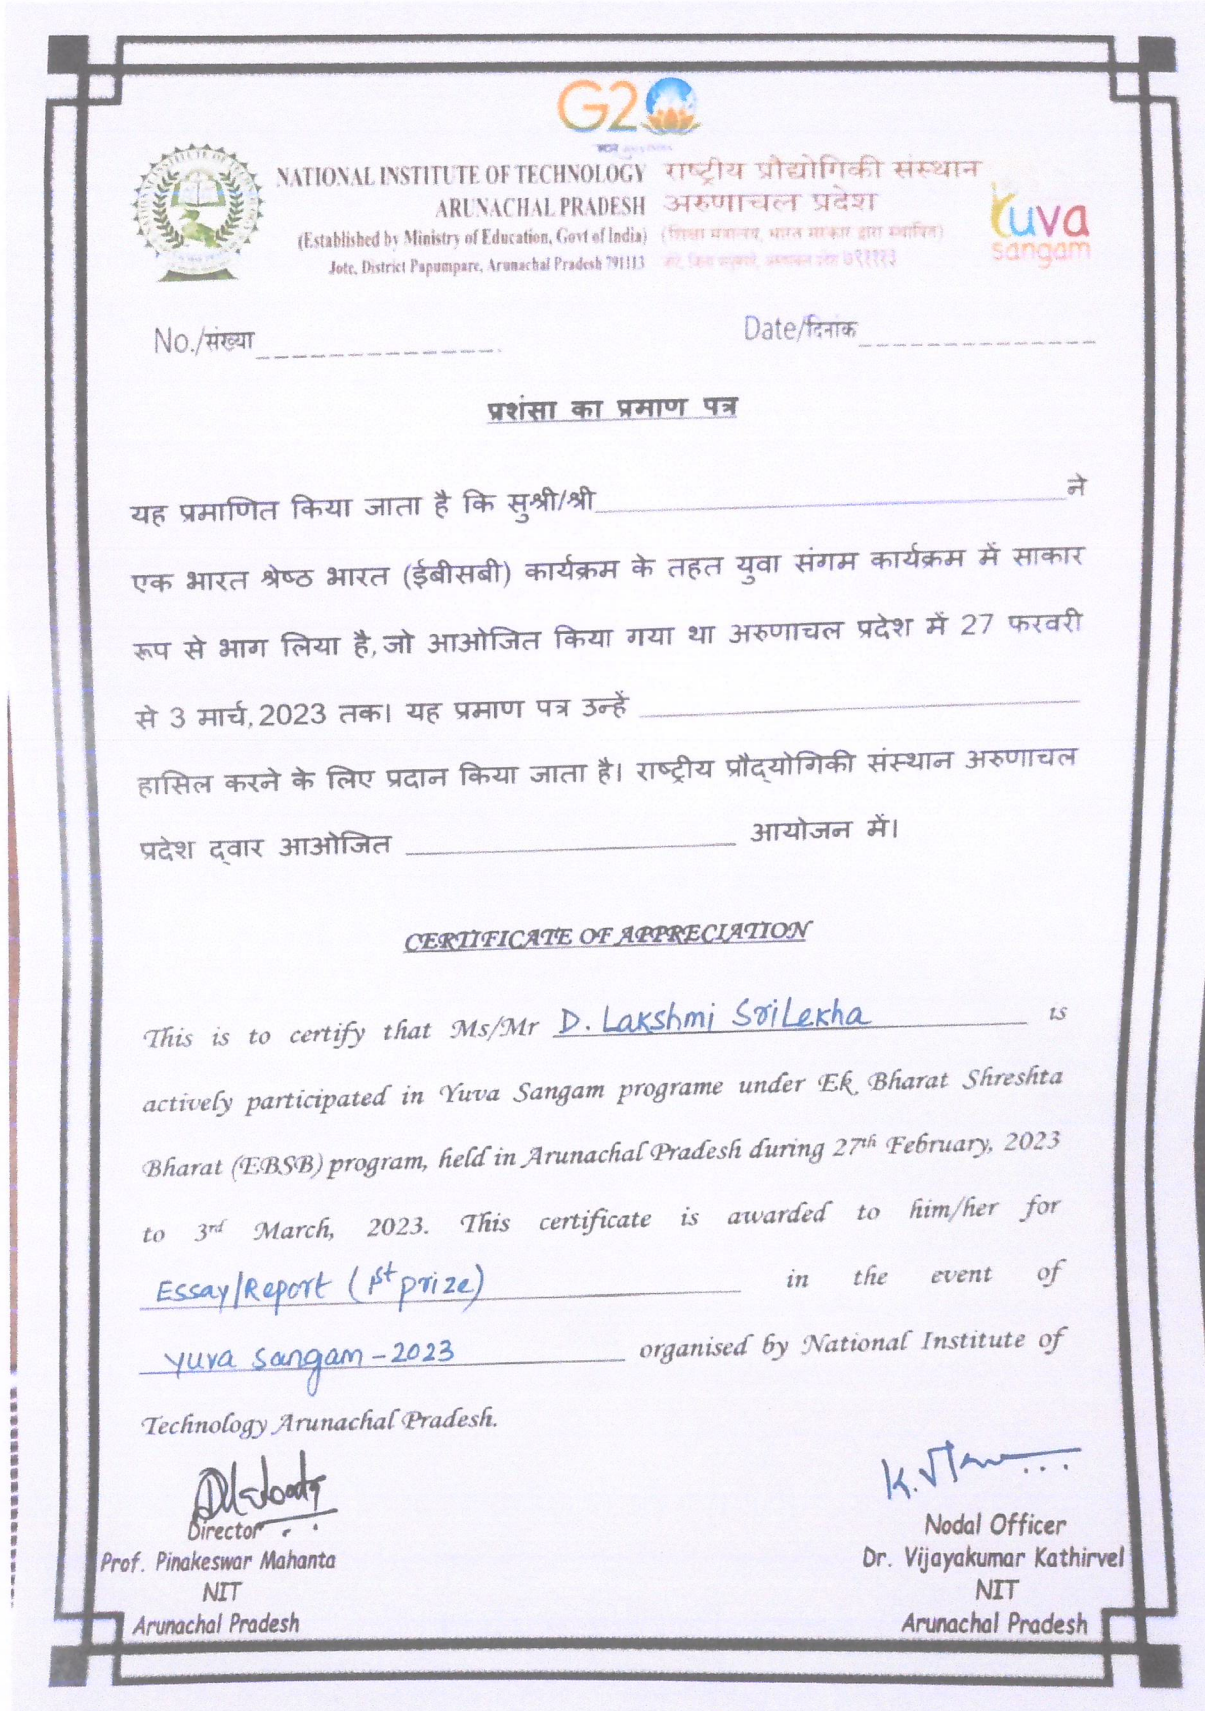 G20
NATIONAL INSTITUTE OF TECHNOLOGY राष्ट्रीय प्रौद्योगिकी संस्थान
ARUNACHAL PRADESH अरुणाचल प्रदेश
(Established by Ministry of Education, Govt of India) (शिक्षा मंत्रालय, भारत सरकार द्वारा स्थापित)
Jote, District Papumpare, Arunachal Pradesh 791113 ७९१११३
yuva
sangam
No./संख्या
Date/दिनांक
प्रशंसा का प्रमाण पत्र
यह प्रमाणित किया जाता है कि सुश्री/श्री ने
एक भारत श्रेष्ठ भारत (ईबीसबी) कार्यक्रम के तहत युवा संगम कार्यक्रम में साकार
रूप से भाग लिया है, जो आओजित किया गया था अरुणाचल प्रदेश में 27 फरवरी
से 3 मार्च, 2023 तक। यह प्रमाण पत्र उन्हें
हासिल करने के लिए प्रदान किया जाता है। राष्ट्रीय प्रौद्योगिकी संस्थान अरुणाचल
प्रदेश द्वार आओजित आयोजन में।
CERTIFICATE OF APPRECIATION
This is to certify that Ms/Mr D. Lakshmi SriLekha is
actively participated in Yuva Sangam programe under Ek Bharat Shreshta
Bharat (EBSB) program, held in Arunachal Pradesh during 27th February, 2023
to 3rd March, 2023. This certificate is awarded to him/her for
Essay/Report (1st prize) in the event of
Yuva Sangam-2023 organised by National Institute of
Technology Arunachal Pradesh.
Director
Prof. Pinakeswar Mahanta
NIT
Arunachal Pradesh
Nodal Officer
Dr. Vijayakumar Kathirvel
NIT
Arunachal Pradesh